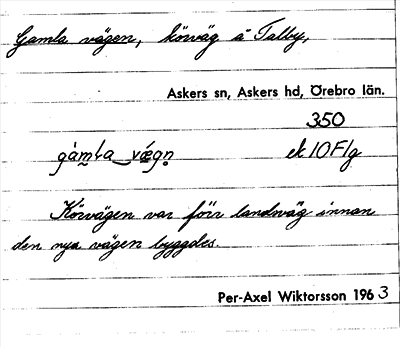 Gamla vägen, körväg å Talby,
Askers sn, Askers hd, Örebro län.
350
ek 10F1g
Körvägen var förr landsväg innan
den nya vägen byggdes.
Per-Axel Wiktorsson 1963